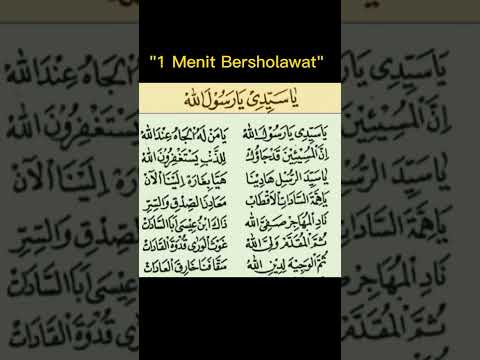 "1 Menit Bersholawat"
يَاسَيِّدِيْ يَارَسُوْلَ اللهْ
يَاسَيِّدِيْ يَارَسُوْلَ اللهْ يَامَنْ لَهُ الْجَاهْ عِنْدَ اللهْ
اِنَّ الْمُسِيْئِيْنَ قَدْ جَاؤُكْ لِلذَّنْبِ يَسْتَغْفِرُوْنَ اللهْ
يَاسَيِّدَ الرُّسْلِ هَادِيْنَا هَيَّا بِغَارَهْ اِلَيْنَا الْآنْ
يَاهِمَّةَ السَّادَاتِ الْاَقْطَابْ مَعَادِنَ الصِّدْقِ وَالسِّرِّ
نَادِ الْمُهَاجِرْ صَفِيَّ اللهْ ذَاكَ ابْنُ عِيْسَى اَبَا السَّادَاتْ
ثُمَّ الْمُقَدَّمْ وَلِيَّ اللهْ غَوْثَ الْوَرَى قُدْوَةَ الْقَادَاتْ
ثُمَّ الْوَجِيْهَ لِدِيْنِ اللهْ سَقَّافَنَا خَارِقَ الْعَادَاتْ